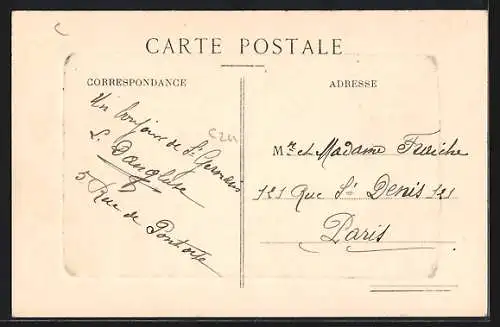 CARTE POSTALE
CORRESPONDANCE
Un bonjour de St Germain
L. Danglese
5 Rue de Pontoise
ADRESSE
Mr et Madame Fraiche
121 Rue St Denis 121
Paris